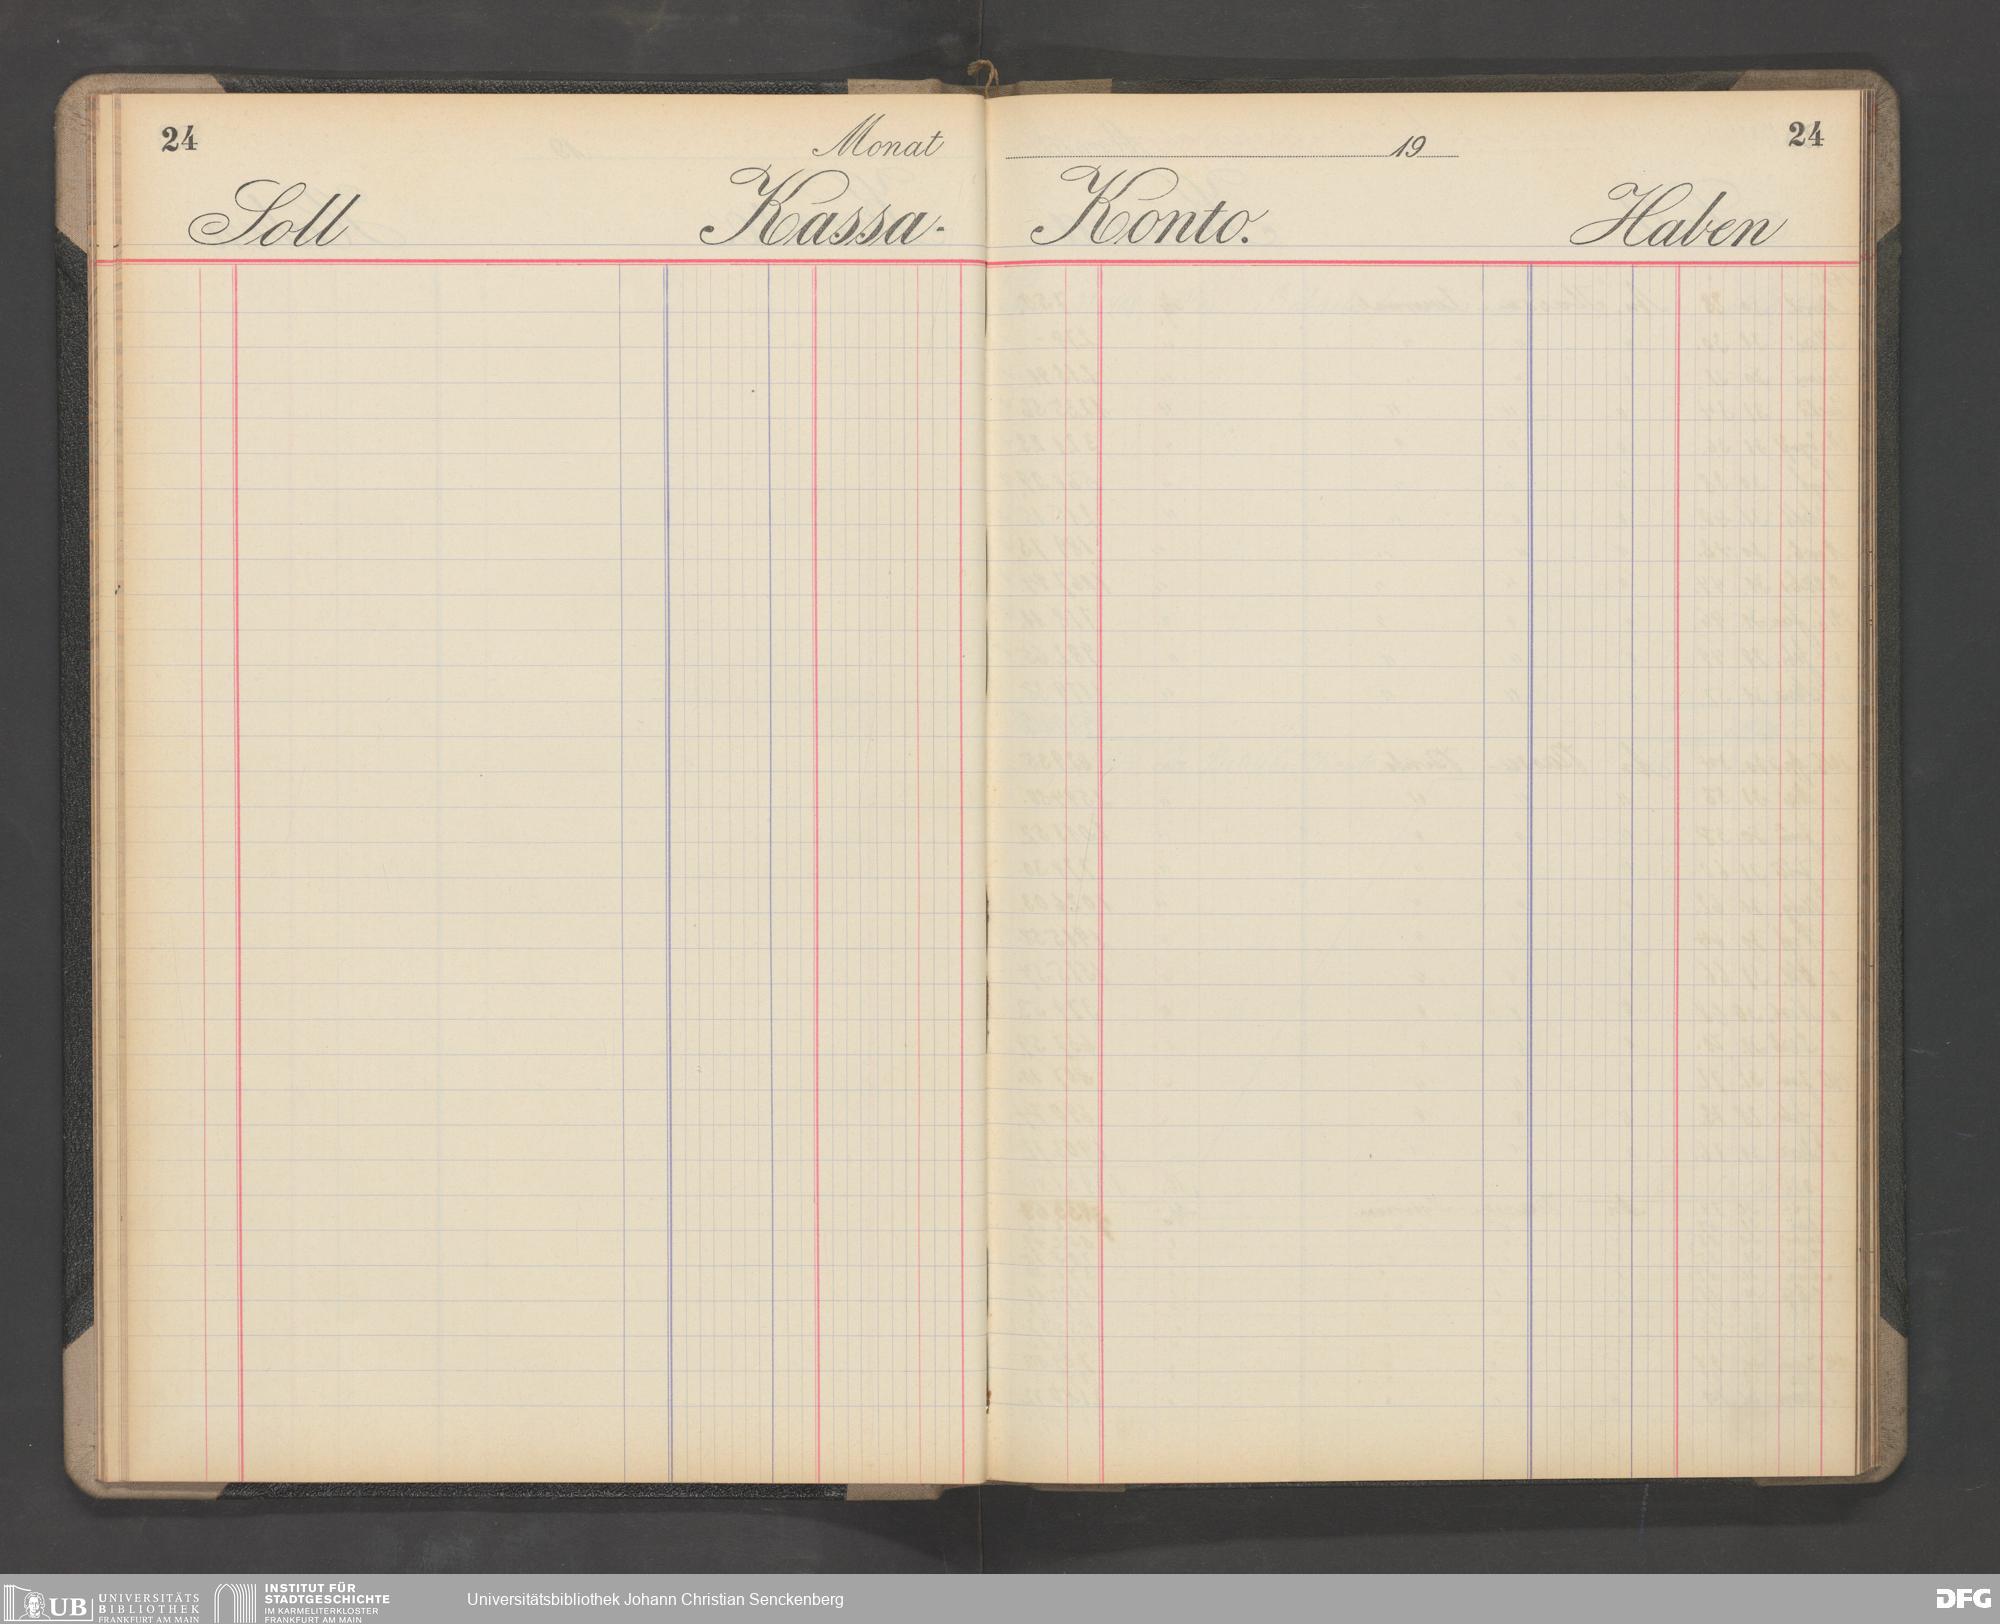 24
Monat
19
24
Soll
Kassa-
Konto.
Haben
UB
UNIVERSITÄTS
BIBLIOTHEK
FRANKFURT AM MAIN
INSTITUT FÜR
STADTGESCHICHTE
IM KARMELITERKLOSTER
FRANKFURT AM MAIN
Universitätsbibliothek Johann Christian Senckenberg
DFG